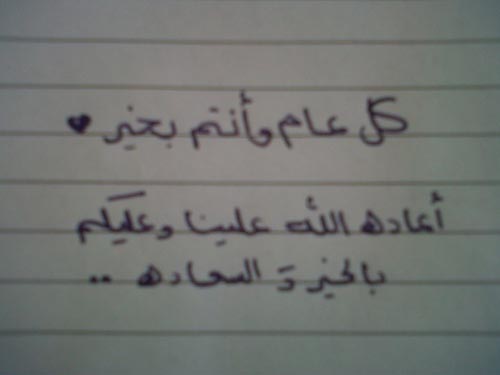 كل عام وأنتم بخير ♥
أعاده الله علينا وعليكم
بالخير و السعاده ..